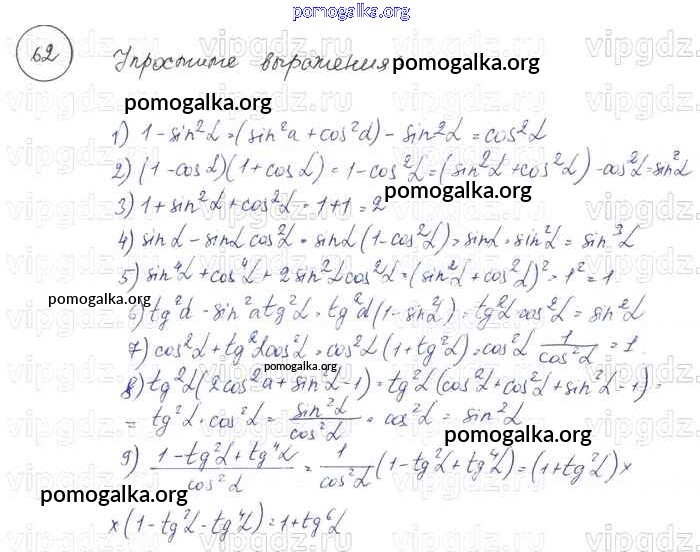 pomogalka.org
62 Упростите выражения pomogalka.org
pomogalka.org
1) 1-sin²α=(sin²a+cos²d)-sin²α=cos²α
2) (1-cosα)(1+cosα)=1-cos²α=(sin²α+cos²α)-cos²α=sin²α
pomogalka.org
3) 1+sin²α+cos²α=1+1=2
4) sinα-sinα cos²α=sinα(1-cos²α)=sinα·sin²α=sin³α
5) sin⁴α+cos⁴α+2sin²αcos²α=(sin²α+cos²α)²=1²=1
pomogalka.org
6) tg²d-sin²a tg²α=tg²d(1-sin²α)=tg²α cos²α=sin²α
7) cos²α+tg²αcos²α=cos²α(1+tg²α)=cos²α 1/cos²α=1
pomogalka.org
8) tg²α(2cos²a+sin²α-1)=tg²α(cos²α+cos²α+sin²α-1)=
=tg²α·cos²α=sin²α/cos²α·cos²α=sin²α
pomogalka.org
9) 1-tg²α+tg⁴α/cos²d=1/cos²α(1-tg²α+tg⁴α)=(1+tg²α)×
pomogalka.org
×(1-tg²α-tg⁴α)=1+tg⁶α
pomogalka.org